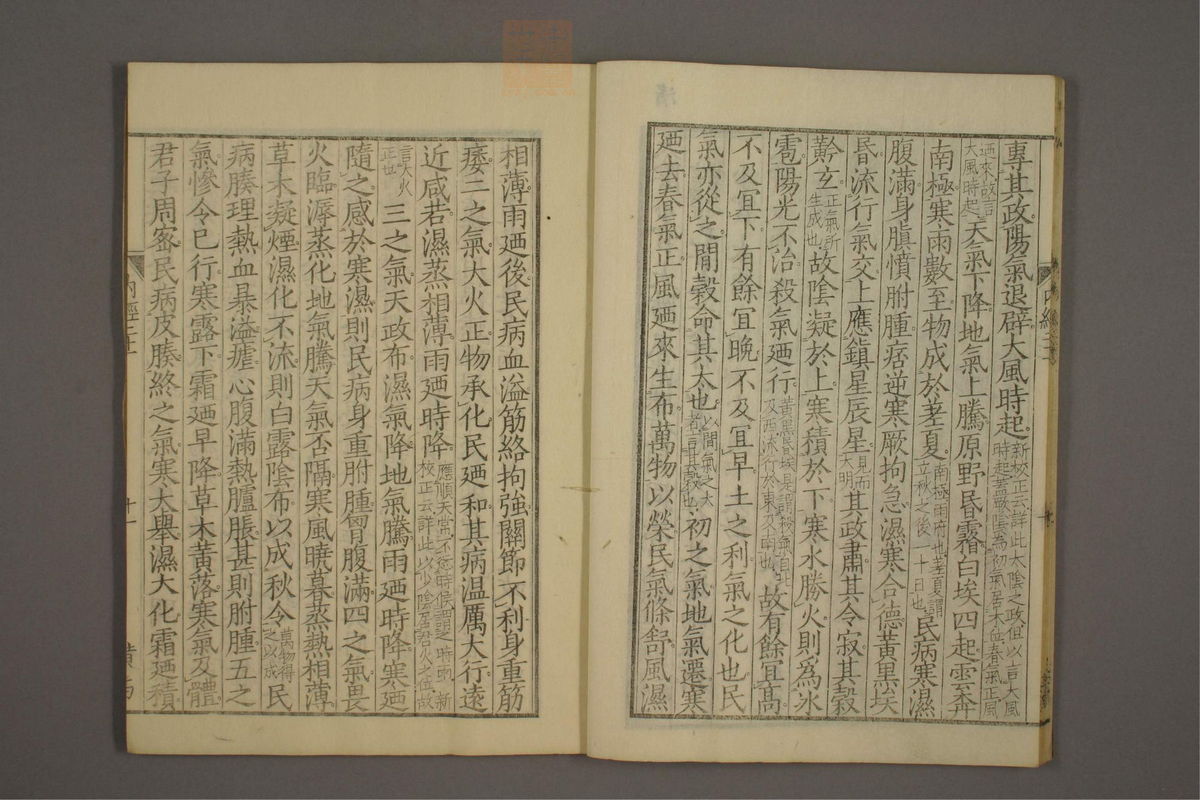 專其政陽氣退辟大風時起新校正云詳此太陰之政但以言大風時起蓋厥陰爲初氣居木位春氣正風
廼來故言大風時起天氣下降地氣上騰原野昏霿白埃四起雲奔
南極寒雨數至物成於差夏南極雨府也差夏謂立秋之後一十日也民病寒濕
腹滿身䐜憤胕腫痞逆寒厥拘急濕寒合德黃黑埃
昏流行氣交上應鎮星辰星見而大明其政肅其令寂其穀
黅玄正氣所生成也故陰凝於上寒積於下寒水勝火則爲冰
雹陽光不治殺氣廼行黃黑昏埃是謂殺氣自北及西流行於東及南也故有餘宜高
不及宜下有餘宜晚不及宜早土之利氣之化也民
氣亦從之間穀命其太也以間氣之大者言其穀也初之氣地氣遷寒
廼去春氣正風廼來生布萬物以榮民氣條舒風濕
相薄雨廼後民病血溢筋絡拘強關節不利身重筋
痿二之氣大火正物承化民廼和其病温厲大行遠
近咸若濕蒸相薄雨廼時降應順天常不愆時候謂之時雨新校正云詳此以少陰居君火之位故
言大火正也三之氣天政布濕氣降地氣騰雨廼時降寒廼
隨之感於寒濕則民病身重胕腫胷腹滿四之氣畏
火臨溽蒸化地氣騰天氣否隔寒風曉暮蒸熱相薄
草木凝煙濕化不流則白露陰布以成秋令萬物得之以成民
病腠理熱血暴溢瘧心腹滿熱臚脹甚則胕腫五之
氣慘令已行寒露下霜廼早降草木黃落寒氣及體
君子周密民病皮腠終之氣寒大舉濕大化霜廼積
內經二十一
十一